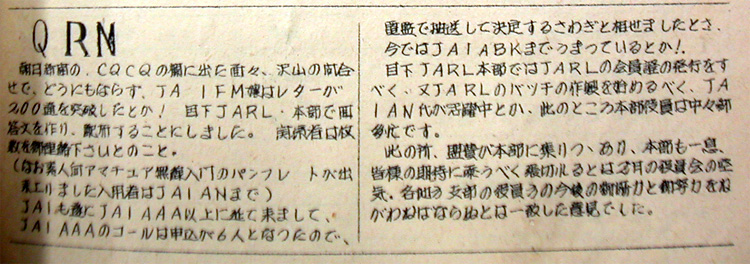 QRN
朝日新聞の、CQCQの欄に出た面々、沢山の問合
せで、どうにもならず、JA1FM嬢はレターが
200通を突破したとか! 目下JARL・本部で回
答文を作り、配布することにしました。関係者は枚
数を御連絡下さいとのこと。
(なお素人向アマチュア無線入門のパンフレットが出
来上りました入用者はJA1ANまで)
JA1も遂にJA1AAA以上に延て来まして、
JA1AAAのコールは申込が6人となつたので、
電監で抽送して決定するさわぎと相せましたとさ、
今ではJA1ABKまでつまっているとか!.
目下JARL本部ではJARLの会員證の発行をす
べく、又JARLのバッチの作製を始めるべく、JA
1AN代が活躍中とか、此のところ本部役員は中々多
忙です。
此の所、盟費が本部に集りつゝあり、本部も一息、
皆様の期待に乗うべく張切れるとは2月の役員会の空
気、各地方支部の役員方の今後の御助力と御努力をね
がわねばならぬとは一致した意見でした。